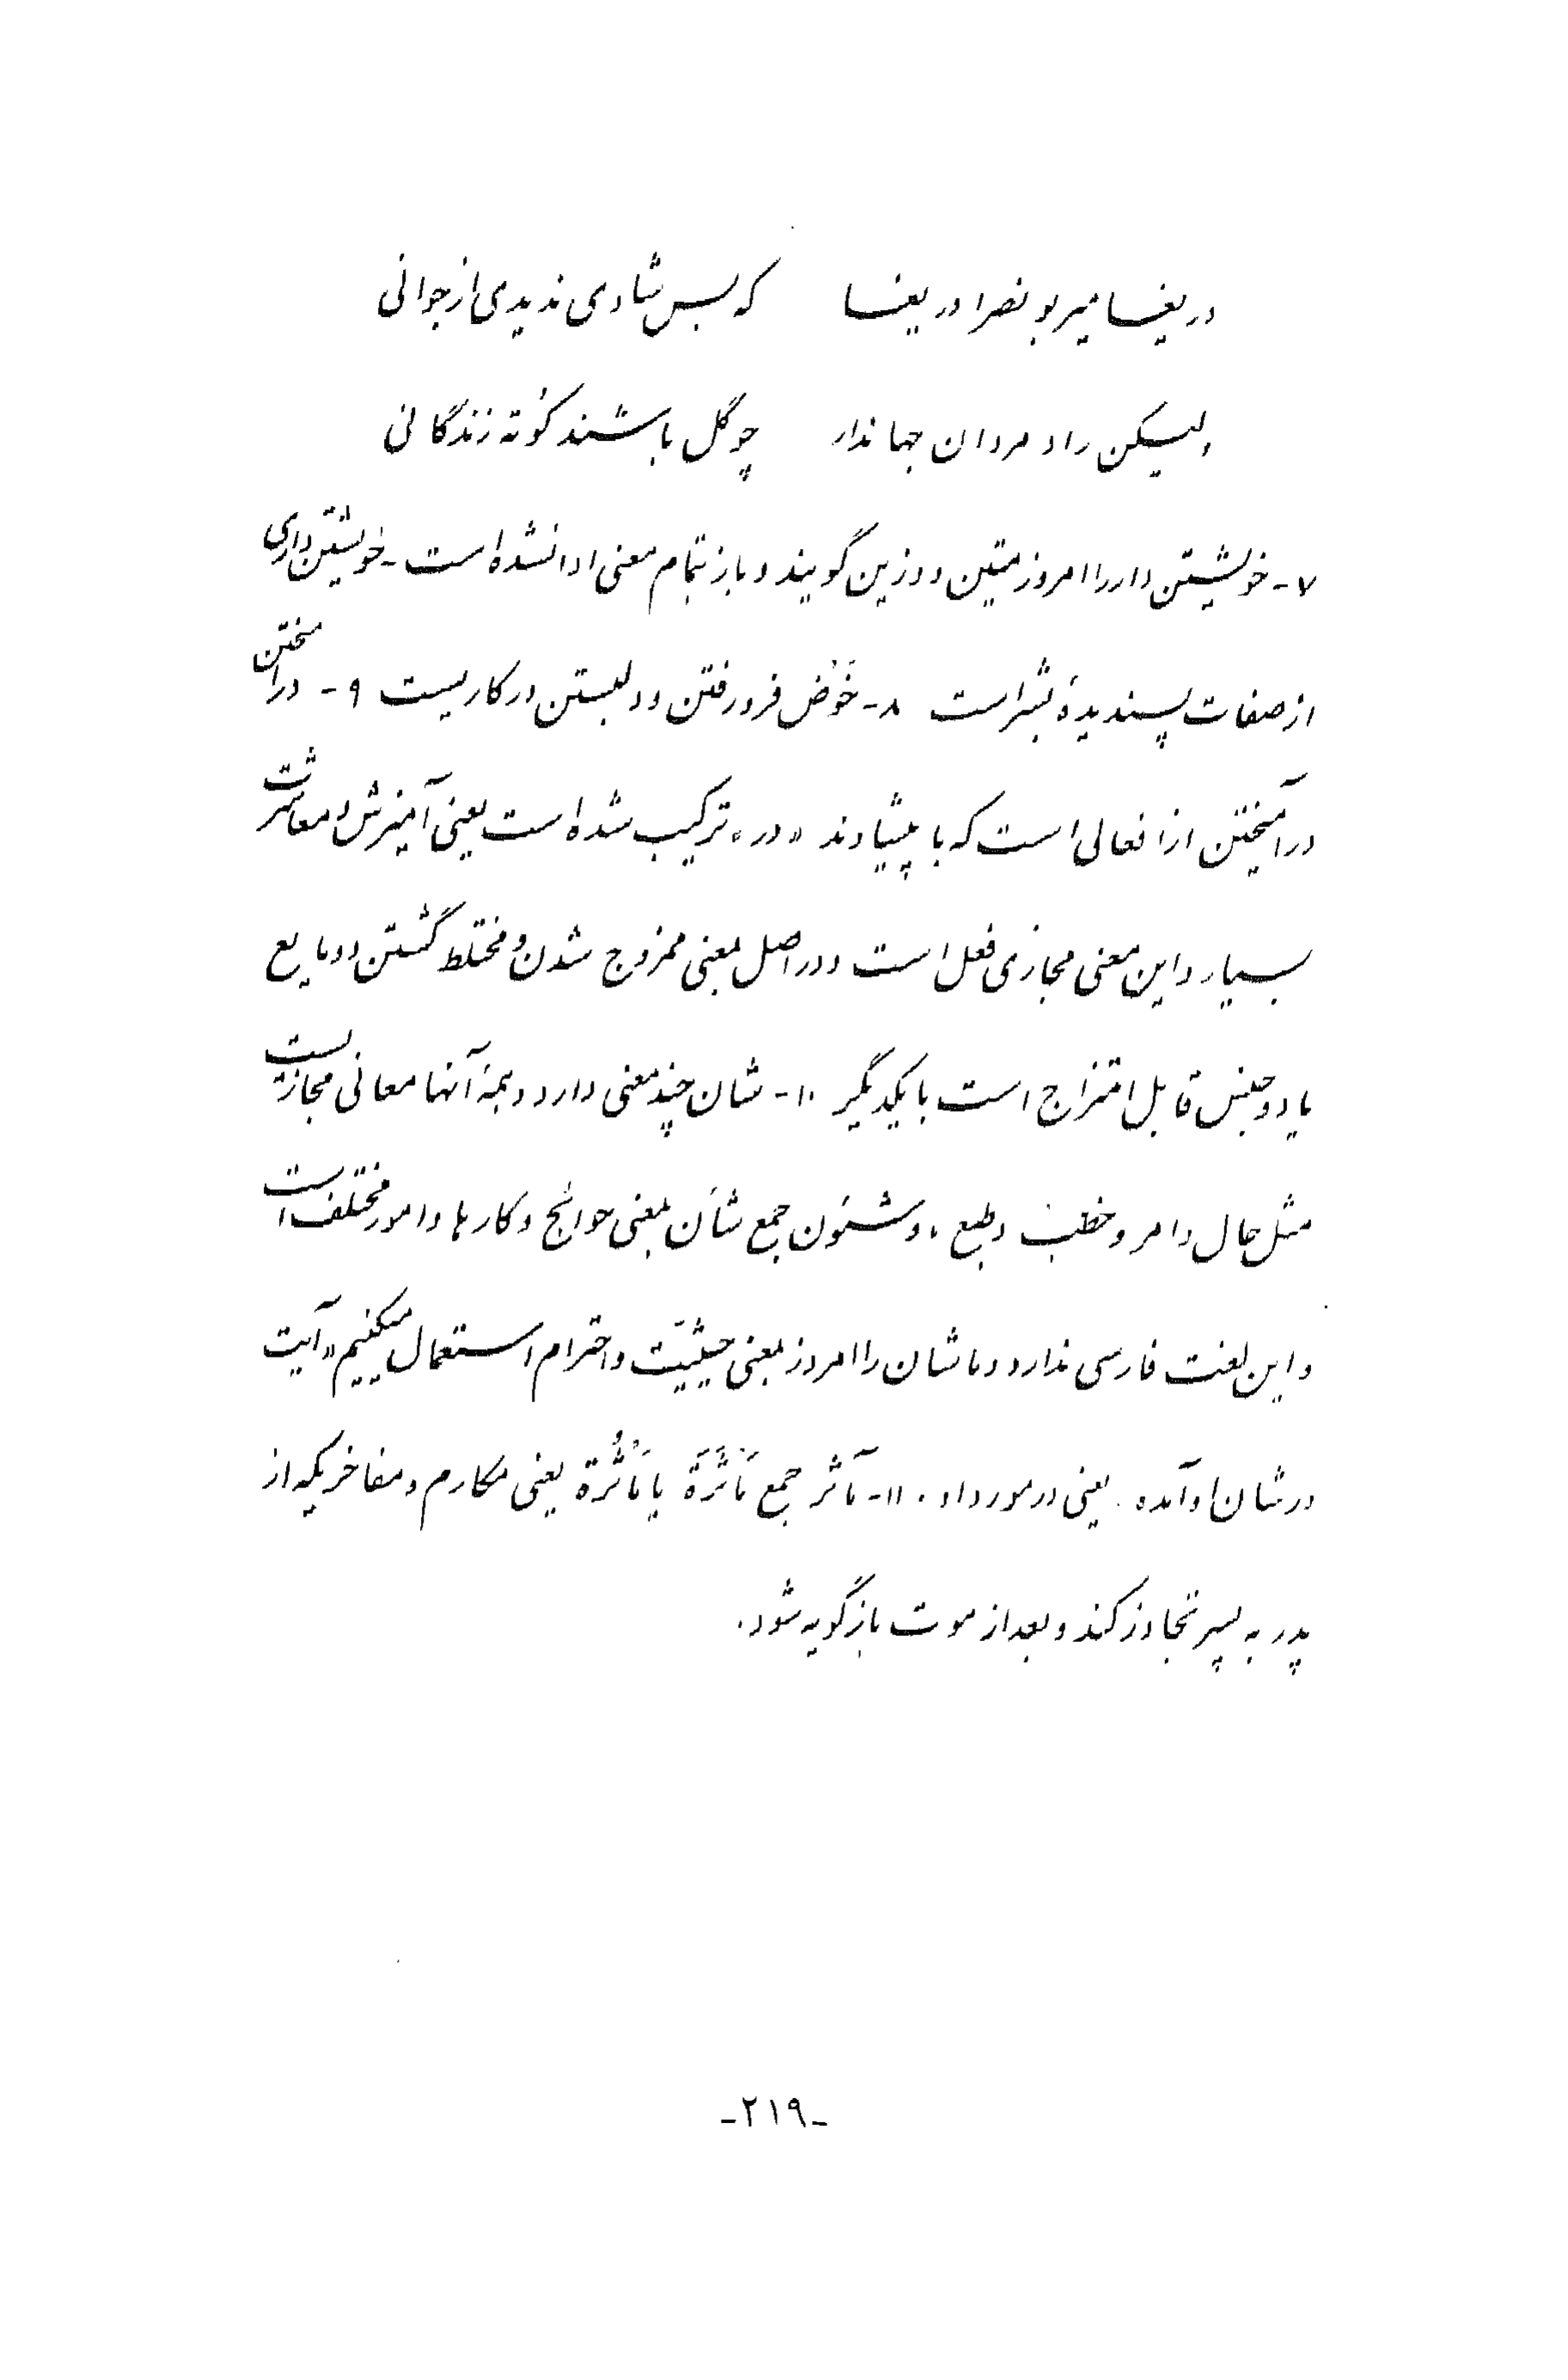 دریغا میر بونصرا دریغا که بس شادی ندیدی از جوانی
ولیکن راد مردان جهاندار چو گل باشند کوته زندگانی
۷- خویشتن دار را امروز متین و وزین گویند و باز بتمام معنی ادا نشده است - خویشتن داری
از صفات پسندیدهٔ بشر است ۸- خَوْض فرو رفتن و دل بستن در کاریست ۹- درآمختن
درآمیختن از افعالی است که با پیشاوند «در» ترکیب شده است یعنی آمیزش و معاشرت
بسیار و این معنی مجازی فعل است و در اصل بمعنی ممزوج شدن و مختلط گشتن دو مایع
یا دو جنس قابل امتزاج است با یکدیگر ۱۰- شان چند معنی دارد و همهٔ آنها معانی مجازیست
مثل حال و امر و خطب و طبع، و شئون جمع شأن بمعنی حوائج و کارها و امور مختلف است
و این لغت فارسی ندارد و ما شان را امروز بمعنی حیثیّت و احترام استعمال میکنیم «آیت
در شان او آمده. یعنی در مورد او. ۱۱- مآثر جمع مَأْثَرَة یا مَأْثُرة یعنی مکارم و مفاخریکه از
پدر به پسر تجاوز کند و بعد از موت بازگویه شود.
-۲۱۹-